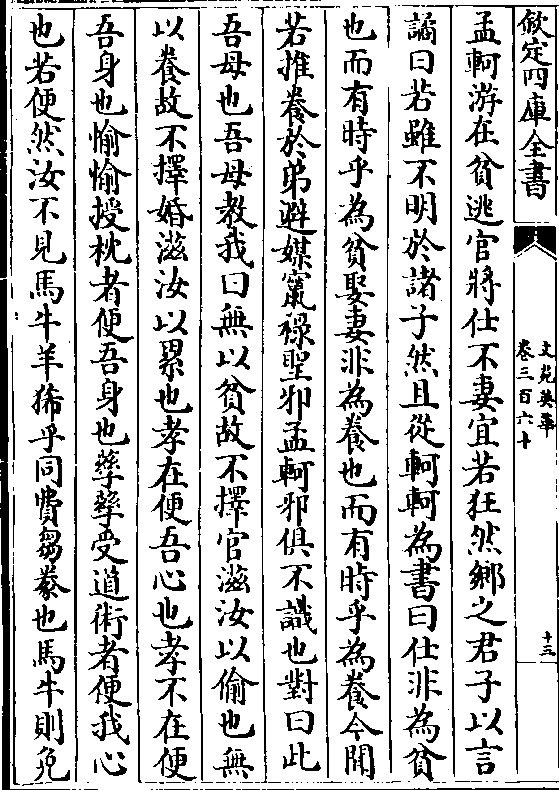 欽定四庫全書
文苑英華
卷三百六十
十三
孟軻游在貧逃官將仕不妻宜若狂然鄉之君子以言
譎曰若雖不明於諸子然且從軻軻為書曰仕非為貧
也而有時乎為貧娶妻非為養也而有時乎為養今聞
若推養於弟避媒竄祿聖邪孟軻邪俱不識也對曰此
吾母也吾母教我曰無以貧故不擇官滋汝以偷也無
以養故不擇婚滋汝以累也孝在便吾心也孝不在便
吾身也愉愉授枕者便吾身也孳孳受道術者便我心
也若便然汝不見馬牛羊豨乎同費芻豢也馬牛則免